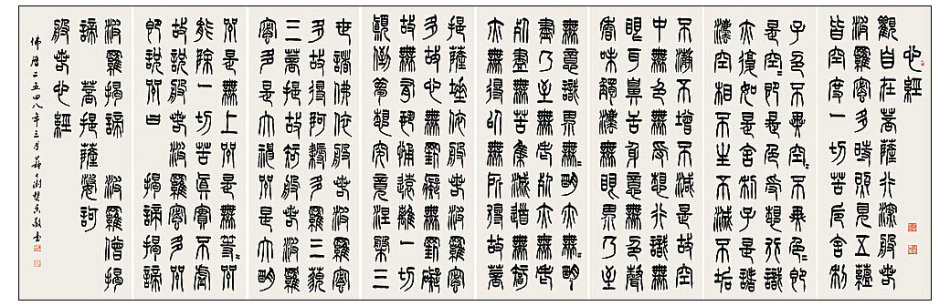 心經
觀自在菩薩行深般若
波羅蜜多時照見五蘊
皆空度一切苦厄舍利
子色不異空=不異色=即
是空=即是色受想行識
亦復如是舍利子是諸
法空相不生不滅不垢
不淨不增不減是故空
中無色無受想行識無
眼耳鼻舌身意無色聲
香味觸法無眼界乃至
無意識界無=明亦無=
明盡乃至無老死亦無=
老死盡無苦集滅道無智
亦無得以無所得故菩
提薩埵依般若波羅蜜
多故心無罣礙無罣礙
故無有恐怖遠離一切
顛倒夢想究竟涅槃三
世諸佛依般若波羅蜜
多故得阿耨多羅三藐
三菩提故知般若波羅
蜜多是大神咒是大明
咒是無上咒是無等=咒
能除一切苦真實不虛
故說般若波羅蜜多咒
即說咒曰 揭諦揭諦
波羅揭諦 波羅僧揭
諦 菩提薩婆訶
般若心經
佛曆二五四八年三月 敬書